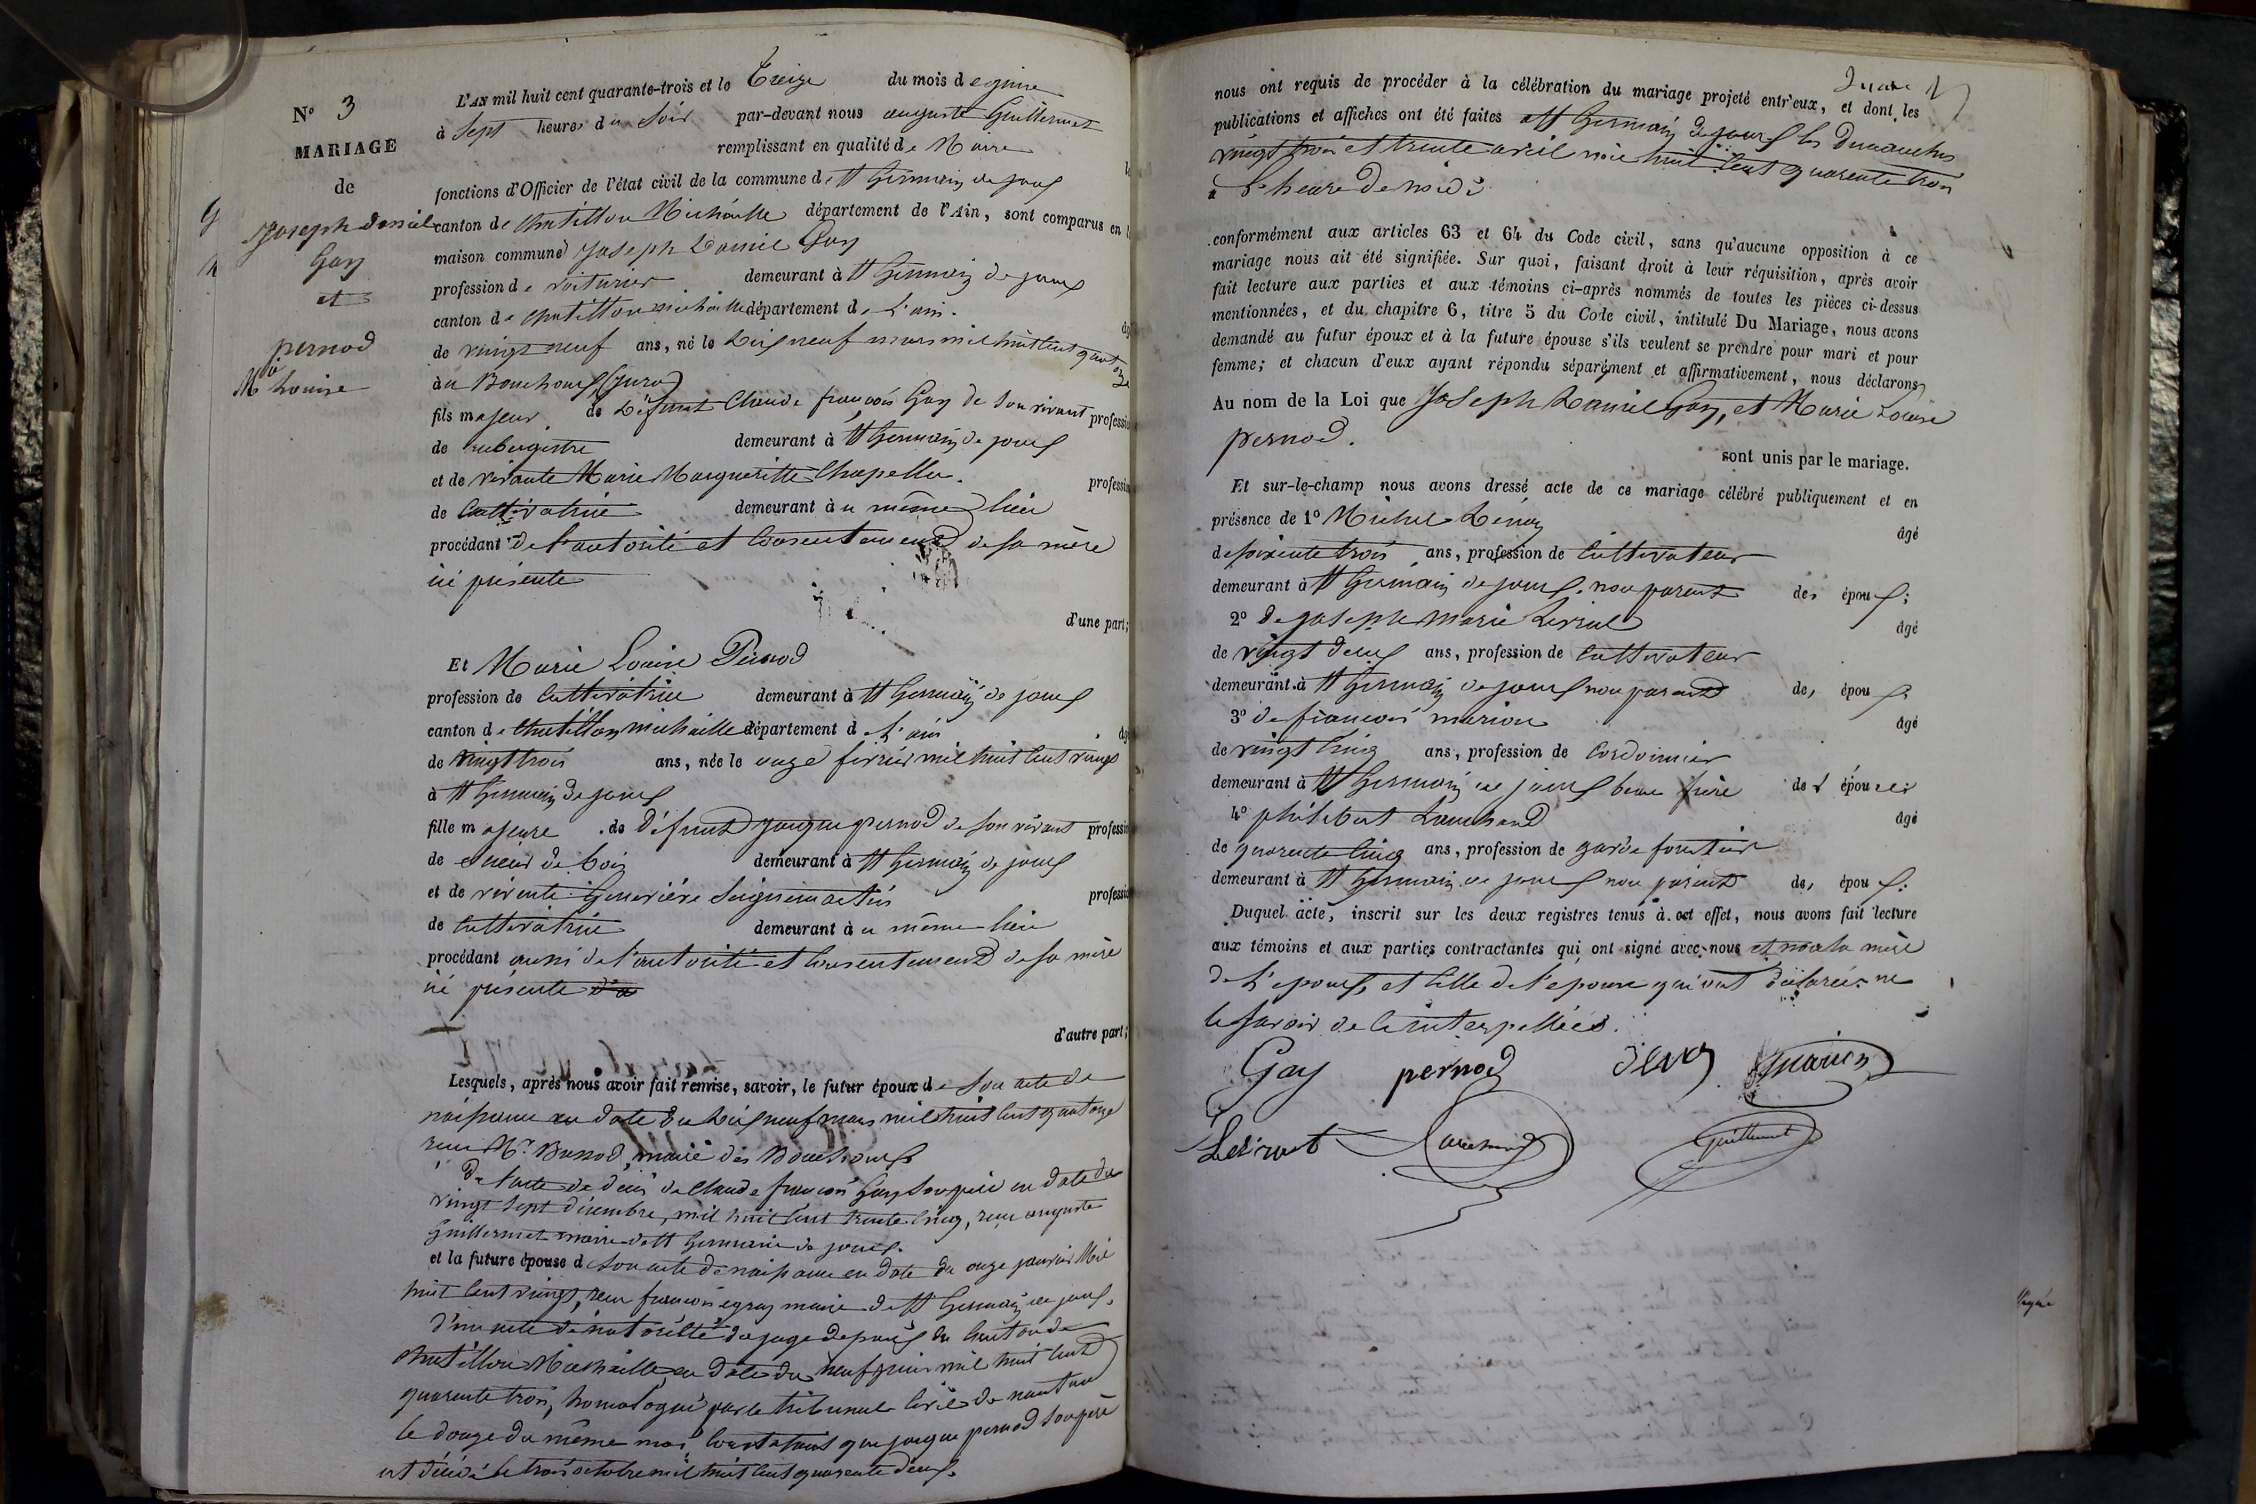 N° 3
MARIAGE
de
Joseph Daniel
Gay
et
pernod
Mie Louise
L'AN mil huit cent quarante-trois et le Treize du mois de juin
à Sept heures du Soir par-devant nous auguste Guillermet
remplissant en qualité de Maire
fonctions d'Officier de l'état civil de la commune de St Germain de joux
canton de Chatillon Michaille département de l'Ain, sont comparus en l
maison commune Joseph Daniel Gay
profession de voiturier demeurant à St Germain de joux
canton de chatillon michaille département de L'ain.
de vingt neuf ans, né le Dix neuf mars mil huit cent quatorze
au Bouchoux (jura)
fils majeur de Défunt Claude françois Gay de Son vivant professi
de aubergiste demeurant à St Germain de joux
et de vivante Marie Margueritte Chapellu. professi
de Cultivatrice demeurant au même lieu
procédant de l'autorité et Consentement de sa mère
ici présente
d'une part;
Et Marie Louise Pernod
profession de Cultivatrice demeurant à St Germain de joux
canton de Chatillon michaille département de L'ain
de vingt trois ans, née le onze février mil huit Cent vingt
à St Germain de joux
fille majeure de Défunt jacque pernod de son vivant professi
de scieur de bois demeurant à St Germain de joux
et de vivante Geneviève Seignemartin professi
de Cultivatrice demeurant au même lieu
procédant aussi de l'autorité et Consentement de sa mère
ici présente
d'autre part;
Lesquels, après nous avoir fait remise, savoir, le futur époux de Son acte de
naissance en date du Dix neuf mars mil huit cent quatorze
reçu Mr. maire des Bouchoux
De l'acte de décès de Claude françois Gay Son père en date du
vingt Sept décembre, mil huit Cent trente Cinq, reçu auguste
Guillermet maire de St Germain de joux.
et la future épouse de Son acte de naissance en date du onze janvier Mil
huit Cent vingt, reçu françois egraz maire de St Germain de joux.
D'un acte de notoriété du juge de paix du Canton de
Chatillon Michaille en date du neuf juin mil huit Cent
quarente trois, homologué par le tribunal Civil de nantua
le douze du même mois Constatant que jacque pernod Son père
est décédé le trois octobre mil huit Cent quarente deux.
nous ont requis de procéder à la célébration du mariage projeté entr'eux, et dont les
publications et affiches ont été faites à St Germain de joux les Dimanches
vingt trois et trente avril mil huit Cent quarente trois
à L'heure de midi
conformément aux articles 63 et 64 du Code civil, sans qu'aucune opposition à ce
mariage nous ait été signifiée. Sur quoi, faisant droit à leur réquisition, après avoir
fait lecture aux parties et aux témoins ci-après nommés de toutes les pièces ci-dessus
mentionnées, et du chapitre 6, titre 5 du Code civil, intitulé Du Mariage, nous avons
demandé au futur époux et à la future épouse s'ils veulent se prendre pour mari et pour
femme; et chacun d'eux ayant répondu séparément et affirmativement, nous déclarons
Au nom de la Loi que Joseph Daniel Gay, et Marie Louise
pernod.
sont unis par le mariage.
Et sur-le-champ nous avons dressé acte de ce mariage célébré publiquement et en
présence de 1° Michel âgé
de soixente trois ans, profession de Cultivateur
demeurant à St Germain de joux, non parent des époux;
2° de joseph marie âgé
de vingt deux ans, profession de Cultivateur
demeurant à St Germain de joux non parent des époux;
3° de françois marion âgé
de vingt Cinq ans, profession de Cordonnier
demeurant à St Germain de joux beau frère de L'épouse;
4° philibert âgé
de quarente Cinq ans, profession de garde forestier
demeurant à St Germain de joux non parent des époux.
Duquel acte, inscrit sur les deux registres tenus à cet effet, nous avons fait lecture
aux témoins et aux parties contractantes qui ont signé avec nous et non la mère
de L'époux, et Celle de l'épouse qui ont déclarées ne
le savoir de Ce interpellées.
Gay pernod marion
Guillermet